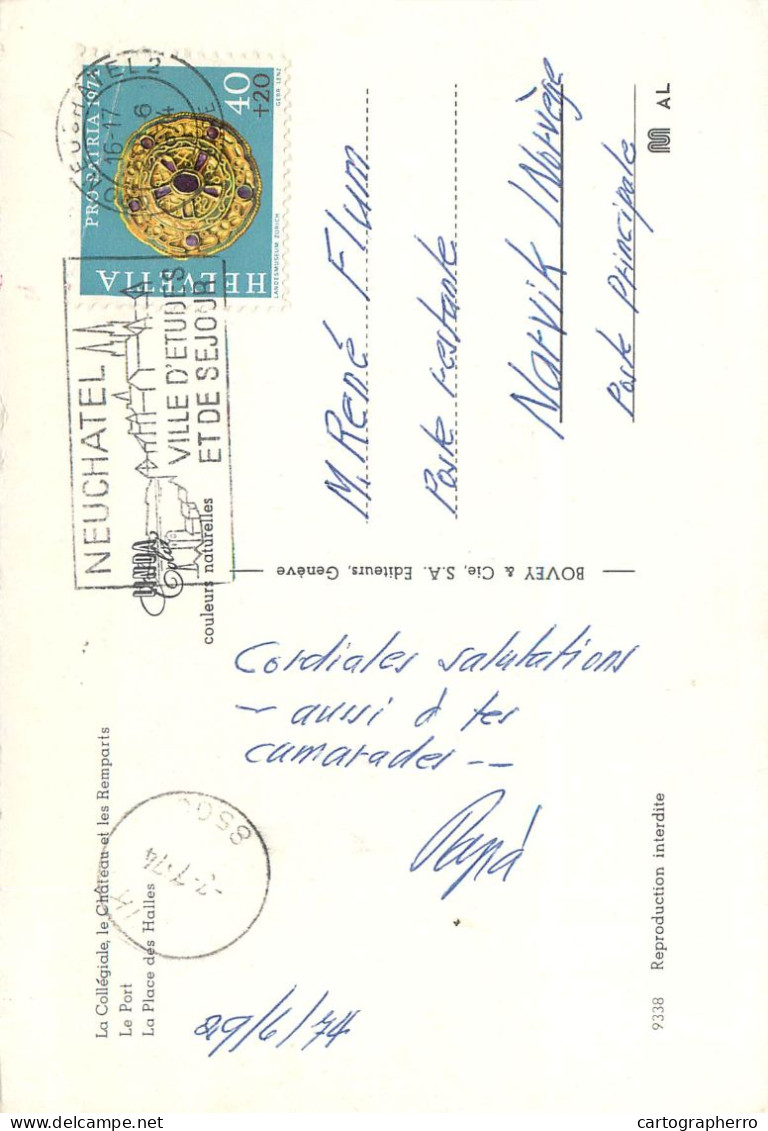 La Collégiale, le Château et les Remparts
Le Port
La Place des Halles
UNDA
Color
couleurs naturelles
29/6/74
Cordiales salutations
- aussi à tes
camarades --
Papá
-2.-7.74
850
9338 Reproduction interdite
BOVEY & Cie, S.A. Editeurs, Genève
NEUCHATEL
VILLE D'ETUDES
ET DE SEJOUR
NEUCHATEL 2
16-17
PRO PATRIA 1974
40
+20
HELVETIA
LANDESMUSEUM ZÜRICH
GEBR. LENZ
M. René Flum
Poste restante
Narvik / Norvège
Poste Principale
M AL
Delcampe.net
cartographerro